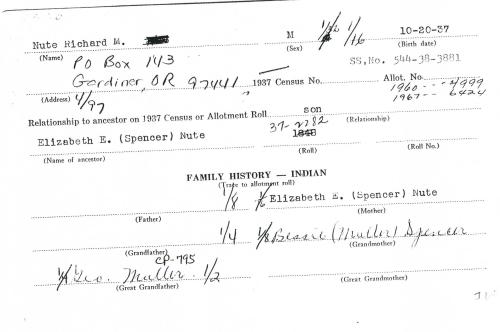 Nute Richard M. M 1/16 10-20-37
(Name) (Sex) (Birth date)
PO Box 143 SS,No. 544-38-3881
Gardiner, OR 97441 1937 Census No. Allot. No.
1960 -- 4999
(Address) 4/97 1967 -- 6424
Relationship to ancestor on 1937 Census or Allotment Roll son
37-2782 (Relationship)
Elizabeth E. (Spencer) Nute 1848
(Name of ancestor) (Roll) (Roll No.)
FAMILY HISTORY — INDIAN
(Trace to allotment roll)
1/8 Elizabeth E. (Spencer) Nute
(Father) (Mother)
1/4 Bessie (Muller) Spencer
(Grandfather) (Grandmother)
CP-795
Geo. Muller 1/2
(Great Grandfather) (Great Grandmother)